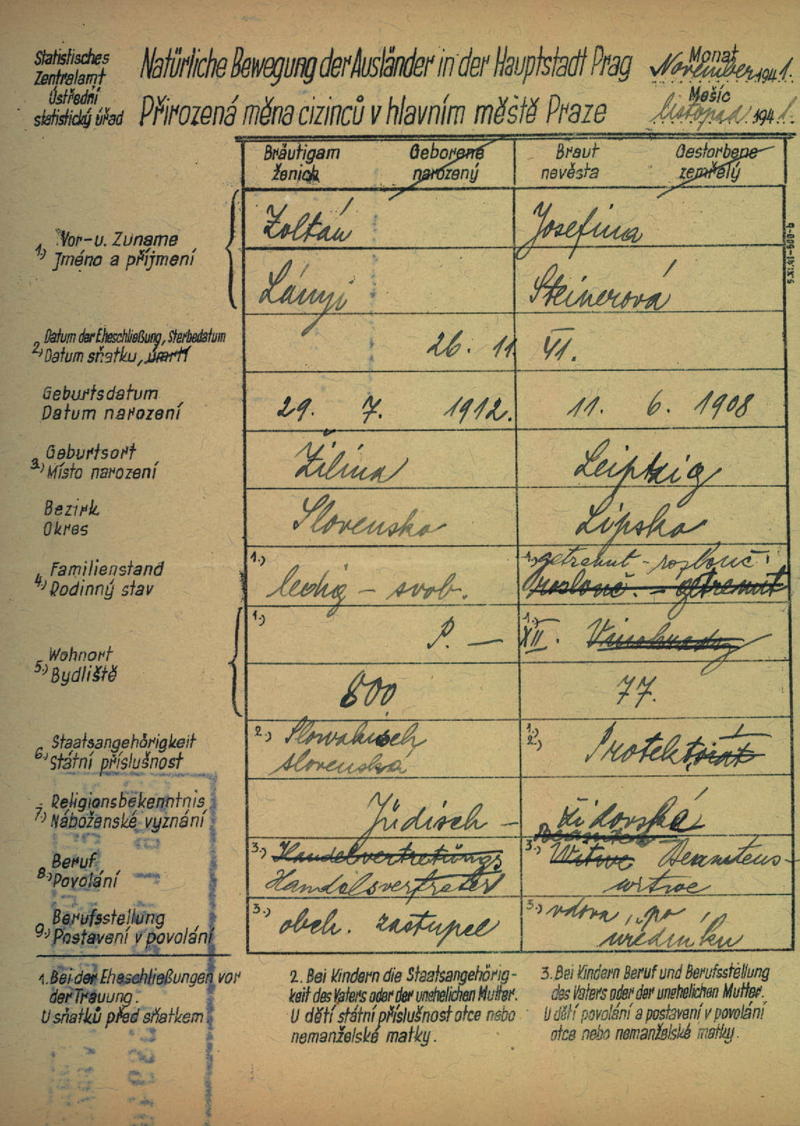 Statistisches
Zentralamt
Ústřední
statistický úřad
Natürliche Bewegung der Ausländer in der Hauptstadt Prag
Přirozená měna cizinců v hlavním městě Praze
Monat
November 1941.
Měsíc
listopad 1941.
Bräutigam Geborene Braut Gestorbene
ženich narozený nevěsta zemřelý
1.) Vor-u. Zuname
Jméno a příjmení
Zoltán Josefina
Lányi Steinerová
2.) Datum der Eheschließung, Sterbedatum
Datum sňatku, úmrtí
26. 11 VI.
Geburtsdatum
Datum narození
29. 7. 1912. 11. 6. 1908
3.) Geburtsort
Místo narození
Žilina Leipzig
Bezirk
Okres
Slovensko Lipsko
4.) Familienstand
Rodinný stav
1.) ledig - svob. 1.) getrennt - rozlouč.
rozlouč. - getrennt
5.) Wohnort
Bydliště
1.) P. — 1.) XII. Vinohrady
800 77.
6.) Staatsangehörigkeit
Státní příslušnost
2.) Slowakisch
slovenská
1.) 2.) Protektorát
7.) Religionsbekenntnis
Náboženské vyznání
Jüdisch - židovská
8.) Beruf
Povolání
3.) Handelsvertretungs
Handelsvertreter
3.) Witwe Beamtens-
witwe
9.) Berufsstellung
Postavení v povolání
3.) obch. zástupce 3.) vdova po
úředníku
1. Bei der Eheschließungen vor
der Trauung.
U sňatků před sňatkem.
2. Bei Kindern die Staatsangehörig-
keit des Vaters oder der unehelichen Mutter.
U dětí státní příslušnost otce nebo
nemanželské matky.
3. Bei Kindern Beruf und Berufsstellung
des Vaters oder der unehelichen Mutter.
U dětí povolání a postavení v povolání
otce nebo nemanželské matky.